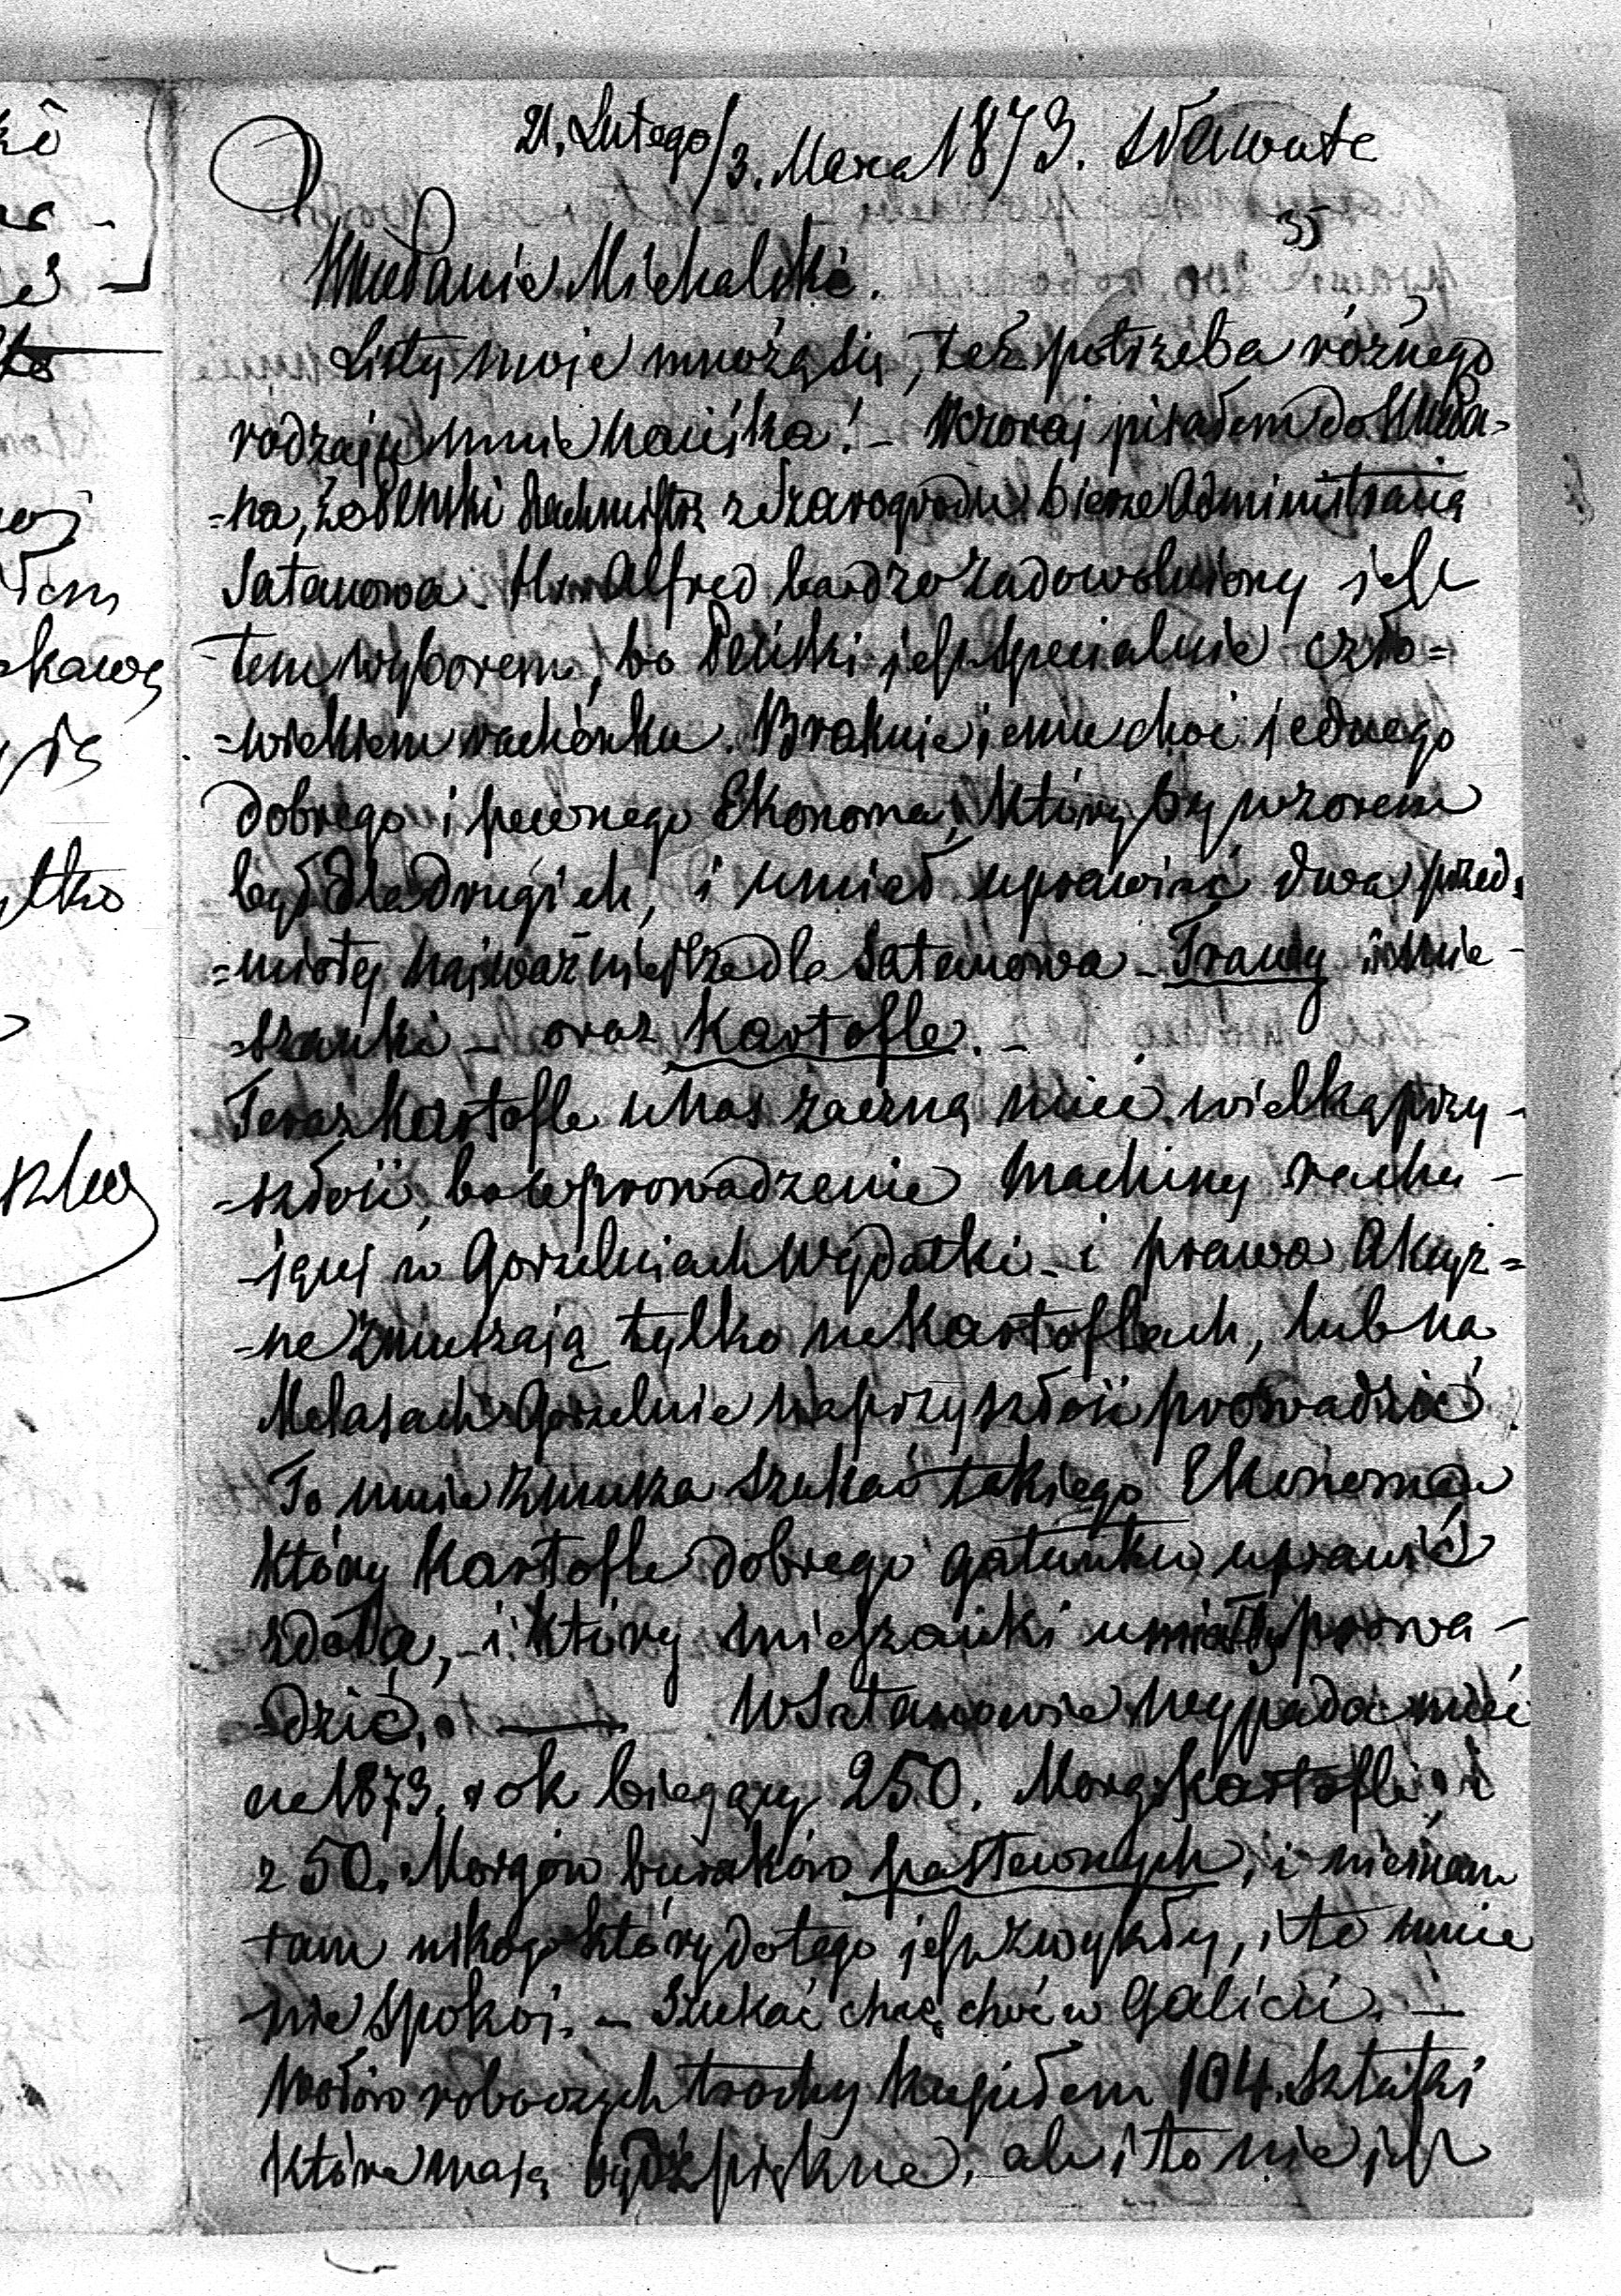 21. Lutego/3. Marca 1873. Sławuta
35
Panie Michalski.
Listy moje mnożą się, też potrzeba różnego
rodzaju mnie naciska! – Wczoraj pisałem do
-na, że Peński z Szarogrodu bierze Administracią
Satanowa. Alfred bardzo zadowolniony jest
tem wyborem, bo Peński jest specialnie czło=
=wiekiem rachónku. Brakuje jemu choć jednego
dobrego i pewnego Ekonoma, któryby wzorem
był dla drugich, i umiał uprawiać dwa przed=
=mioty najważniejsze dla Satanowa – Trawy i mie-
=szanki – oraz Kartofle. –
Teraz Kartofle u nas zaczną mieć wielką przy-
-szłość, bo wprowadzenie Machiny rachu-
-jącej w Gorzelniach wydatki – i prawa Akcyz=
-ne zmuszają tylko na Kartoflach, lub na
Melasach Gorzelnie na przyszłość prowadzić.
To mnie zmusza szukać takiego Ekonoma
który Kartofle dobrego gatunku uprawić
zdoła, – i który mieszanki umiałby prowa-
-dzić. — W Satanowie wypada mieć
na 1873. rok bieżący 250. Morg. Kartofli, i
z 50. Morgów buraków pastewnych, i nie mam
tam nikogo który do tego jest zwykły, i to mnie
nie spokoi. – Szukać chcę choć w Galicii. –
Wołów roboczych trochę kupiłem 104. Sztuki
które mają bydź piękne, ale i to nie jest